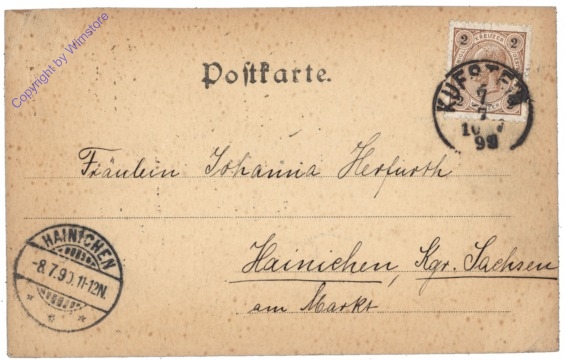 Copyright by Wimstore
2 KREUZER 2
Postkarte.
KUFSTEIN
7
7
98
Fräulein Johanna Herfurth
Hainichen, Kgr. Sachsen
am Markt
HAINICHEN
-8.7.9 11-12N.